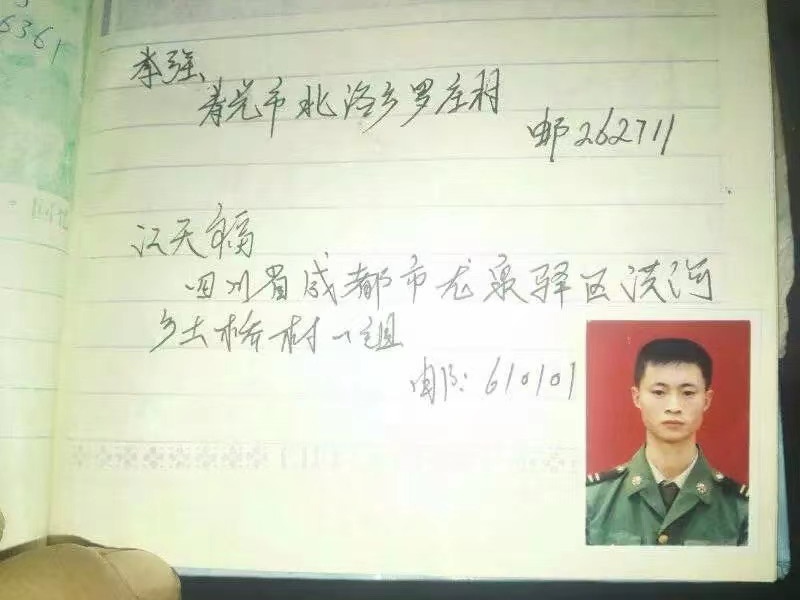 6361
李强
寿光市北洛乡罗庄村
邮262711
江天福
四川省成都市龙泉驿区洪河
乡土桥村一组
邮: 610101